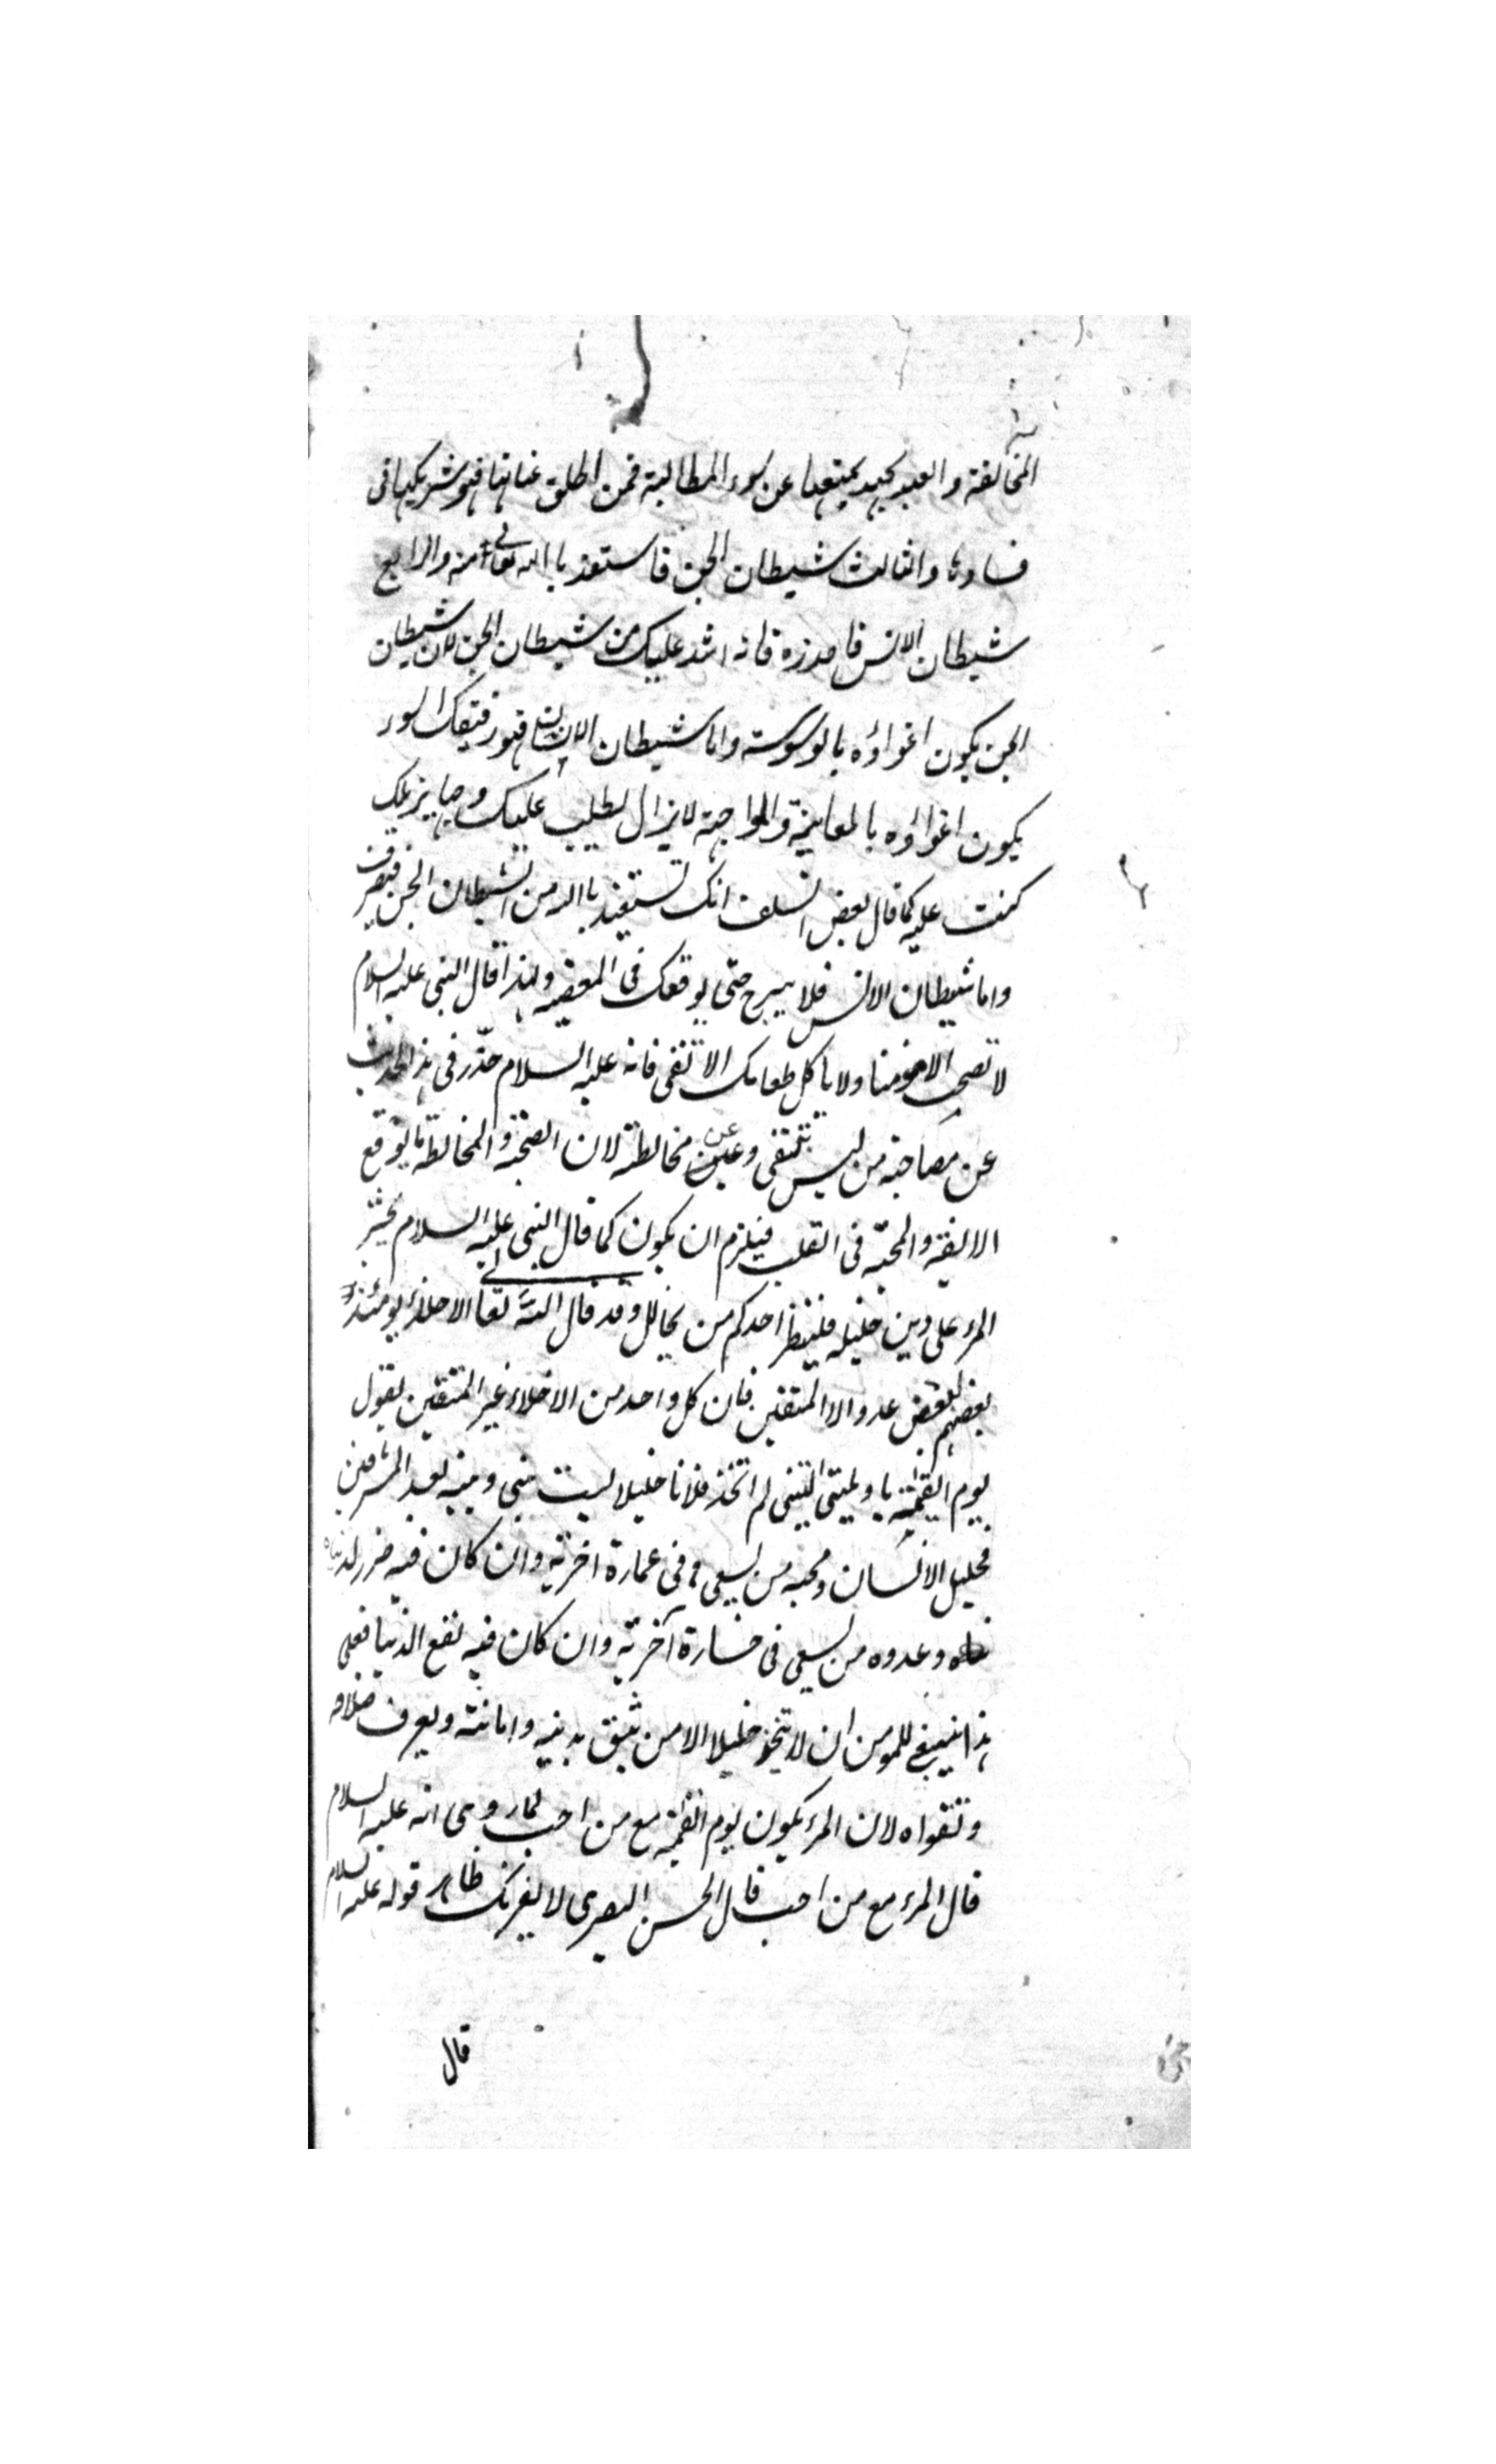 المخالفة والعبد يجهد بمنعها عن سوء المطالبة فمن اطلق عنانها فهو شريكها فى
فسادها والثالث شيطان الجن فاستعذ باالله تعالى منه والرابع
شيطان الانس فاحذره فانه اشد عليك من شيطان الجن لان شيطان
الجن يكون اغواؤه بالوسوسة واما شيطان الانس فهو رفيقك السوء
يكون اغواؤه بالمعاينة والمواجهة لا يزال يطلب عليك وجها يزيلك
كنت عليه كما قال بعض السلف انك تستعيذ باالله من الشيطان الجن فينصرف
واما شيطان الانس فلا يبرح حتى يوقعك فى المعصية ولهذا قال النبى عليه السلام
لا تصحب الا مؤمنا ولا ياكل طعامك الا تقى فانه عليه السلام حذّر فى هذا الحديث
عن مصاحبة من ليس بتقى وعن مخالطته لان الصحبة والمخالطة توقع
الالفة والمحبّة فى القلب فيلزم ان يكون كما قال النبى عليه السلام يحشر
المرء على دين خليله فلينظر احدكم من يخالل وقد قال الله تعالى الاخلاء يومئذ
بعضهم لبعض عدو الا المتقين فان كل واحد من الاخلاء غير المتقين يقول
يوم القيمة يا ويلتى ليتنى لم اتخذ فلانا خليلا ليت بينى وبينه بعد المشرقين
فخليل الانسان ومحبه من يسعى فى عمارة اخرته وان كان فيه ضرر لدنياه
وعدوه من يسعى فى خسارة آخرته وان كان فيه نفع الدنيا فعلى
هذا ينبغى للمومن ان لا يتخذ خليلا الا من يثق بدينه وامانته ويعرف صلاحه
وتقواه لان المرء يكون يوم القيمة مع من احب لما روى انه عليه السلام
قال المرء مع من احب قال الحسن البصرى لا يغرنك ظاهر قوله عليه السلام
قال